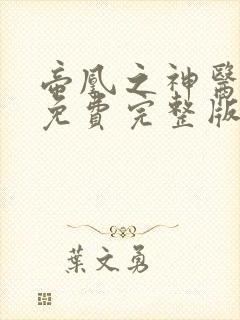 蛮凰之神醫
免費完整版
葉文勇